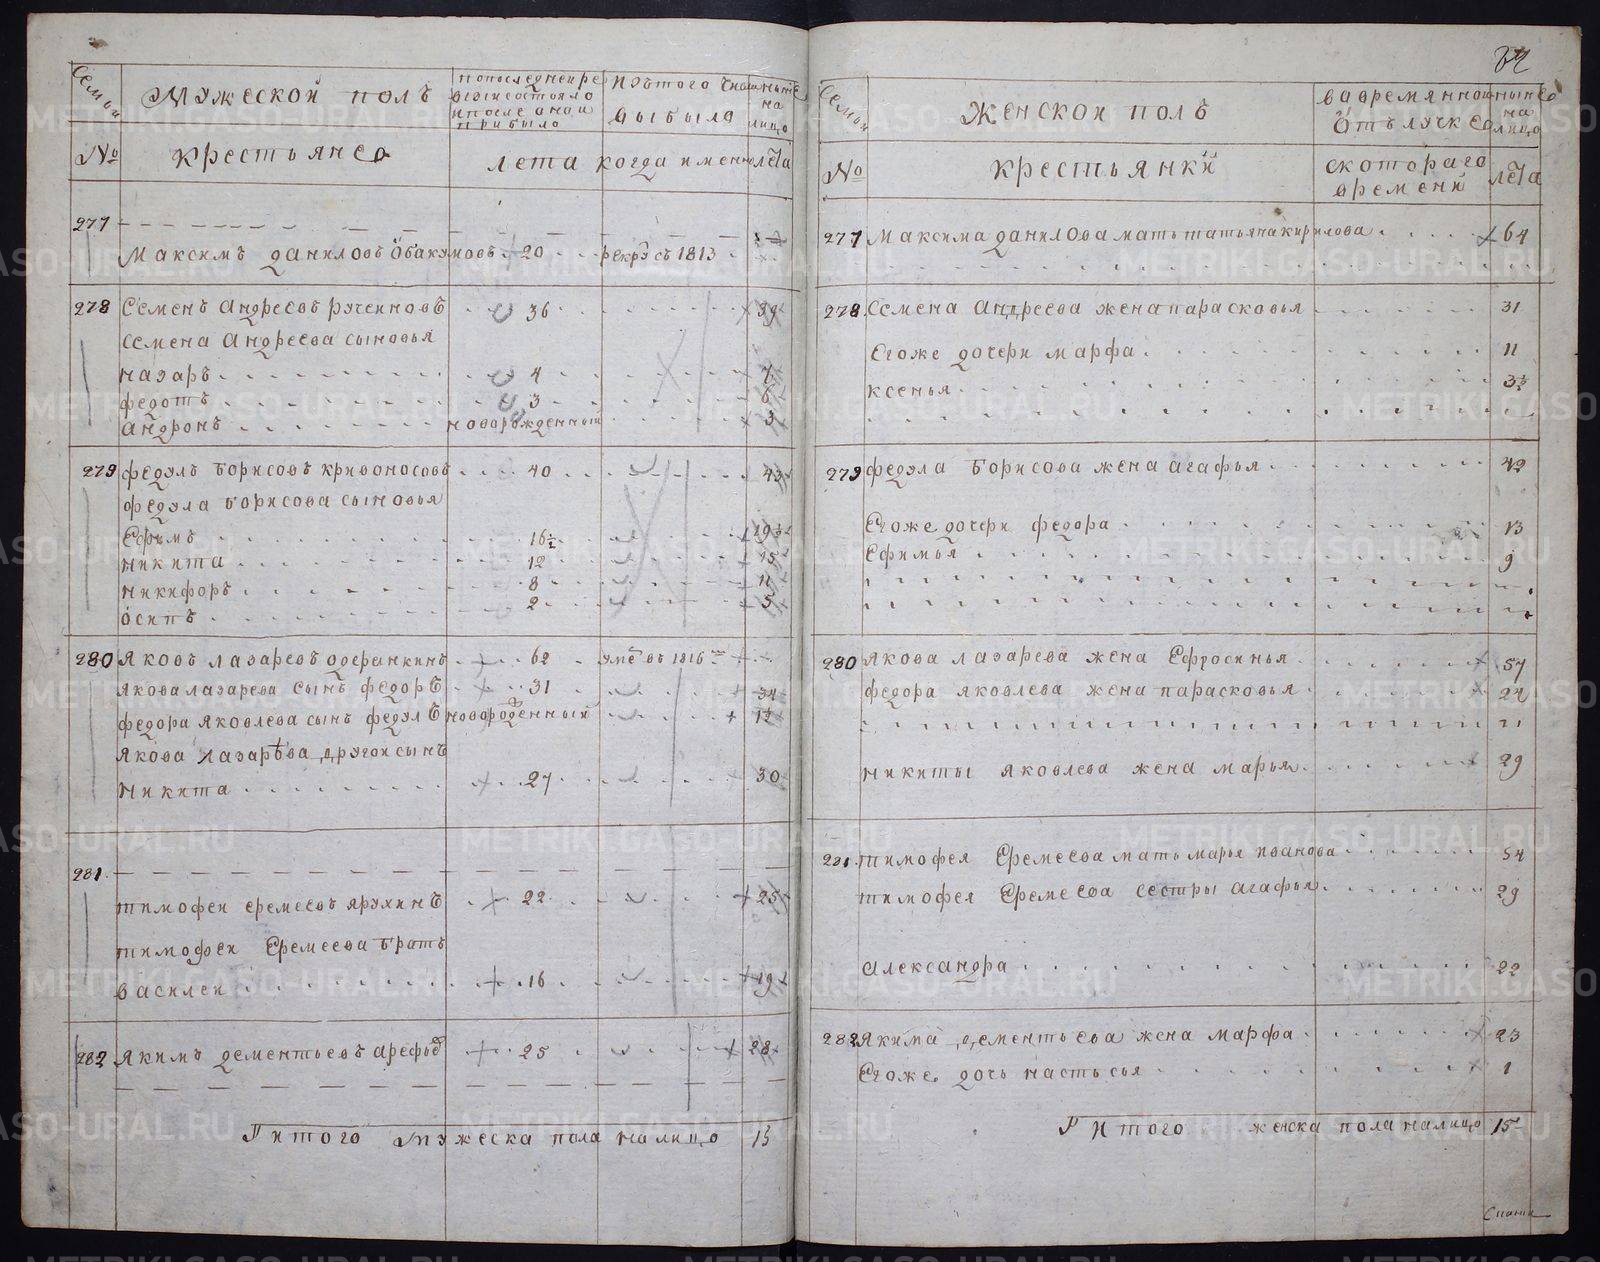 Семьи
Мужескои полъ
попоследнеи ре
визии состояло
и после онаи
прибыло
Изътого числа
выбыло
ныне
на
лицо
№
крестьяне
лета
когда имен
лета
277
Максимъ даниловъ Обакумовъ 20 рекрусъ 1813
278 Семенъ Андреевъ 36 39
Семена Андреева сыновья
назаръ 4 7
федотъ 3 6
андронъ новорожденный 3
279 федулъ Борисовъ кривоносовъ 40 43
федула Борисова сыновья
Ефимъ 16½ 19½
никита 12 15
никифоръ 8 11
осипъ 2 5
280 Яковъ лазаревъ 62 уме въ 1816
Якова лазарева сынъ федоръ 31 34
федора яковлева сынъ федулъ новорожденный 1½
Якова лазарева другои сынъ
никита 27 30
281
тимофеи еремеевъ ярухинъ 22 25
тимофеи Еремеева братъ
василеи 16 19
282 Якимъ дементьевъ арефьевъ 25 28
И итого мужеска пола налицо 13
Семьи
Женскои полъ
вовремяннои
отълучке
ныне
на
лицо
№
крестьянки
скотораго
времени
лета
277 Максима данилова мать татьяна кирилова 64
278 Семена Андреева жена парасковья 31
Егоже дочери марфа 11
ксенья 3½
279 федула Борисова жена агафья 42
Егоже дочери федора 13
Ефимья 9
280 Якова лазарева жена Ефросинья 57
федора яковлева жена парасковья 24
никиты яковлева жена марья 29
281 тимофея Еремеева мать марья иванова 54
тимофея Еремеева сестры агафья 29
александра 22
282 Якима дементьева жена марфа 23
Егоже дочь настьсья 1
И итого женска пола налицо 15
METRIKI.GASO-URAL.RU